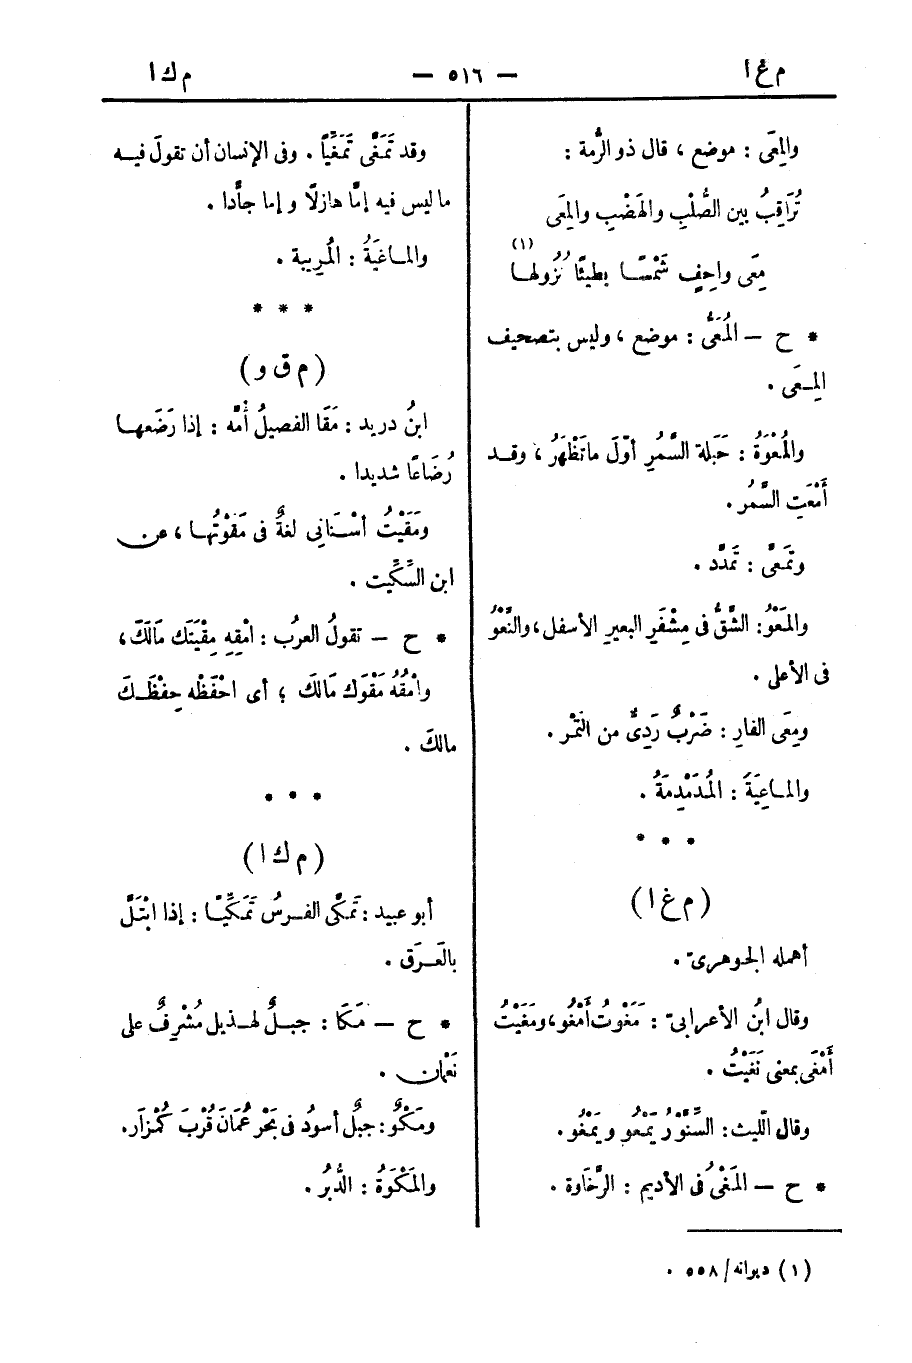 م غ ا — ٥١٦ — م ك ا
والمِعَى : موضع ، قال ذو الرُّمة :
تُرَاقِبُ بين الصُّلْبِ والهَضْبِ والمِعَى
مِعَى واحِفٍ شَمْسًا بطيئًا نُزُولها (١)
* ح — المُعَىُّ : موضع ، وليس بتصحيف
المِعَى .
والمُعْوَةُ : حَبَلة السَّمُرِ أوّلَ ماتَظْهَرُ ، وقد
أَمْعَتِ السَّمُر .
وتَمَعَّى : تَمَدَّد .
والمَعْوُ : الشَّقُّ فى مِشْفَرِ البعيرِ الأسفل ، والنَّعْوُ
فى الأعلى .
ومِعَى الفارِ : ضَرْبٌ رَدِىٌّ من التَّمْر .
والماعِيَةُ : المُدَمْدِمَةُ .
* * *
(م غ ا)
أهمله الجوهرىّ .
وقال ابنُ الأعرابىّ : مَغَوْتُ أَمْغُو ، ومَغَيْتُ
أَمْغَى بمعنى نَغَيْتُ .
وقال اللّيث : السِّنَّوْرُ يَمْعُو ويَمْغُو .
* ح — المَغْىُ فى الأديم : الرَّخَاوة .
(١) ديوانه / ٥٥٨ .
وقد تَمَغَّى تَمَغِّيًا . وفى الإنسان أن تقولَ فيه
ما ليس فيه إمَّا هازلًا وإما جادًّا .
والماغيَةُ : المُرِيبة .
* * *
(م ق و)
ابنُ دريد : مَقَا الفصيلُ أُمَّه : إذا رَضَعها
رُضَاعًا شديدا .
ومَقَيْتُ أسْنانى لغةٌ فى مَقَوْتُها ، عن
ابن السِّكِّيت .
* ح — تقولُ العربُ : امْقِهِ مِقْيَتَك مَالَكَ ،
وامْقُهُ مَقْوَك مَالَكَ ؛ أى احْفَظْه حِفْظَكَ
مالكَ .
* * *
(م ك ا)
أبو عبيد : تَمَكَّى الفرسُ تَمَكِّيًا : إذا ابْتَلَّ
بالعَرَق .
* ح — مَكَا : جبلٌ لهذيل مُشْرِفٌ على
نَعْمان .
ومَكْوٌ : جبلٌ أسودُ فى بَحْر عُمَانَ قُرْبَ كُمْزَار .
والمَكْوَةُ : الدُّبُر .